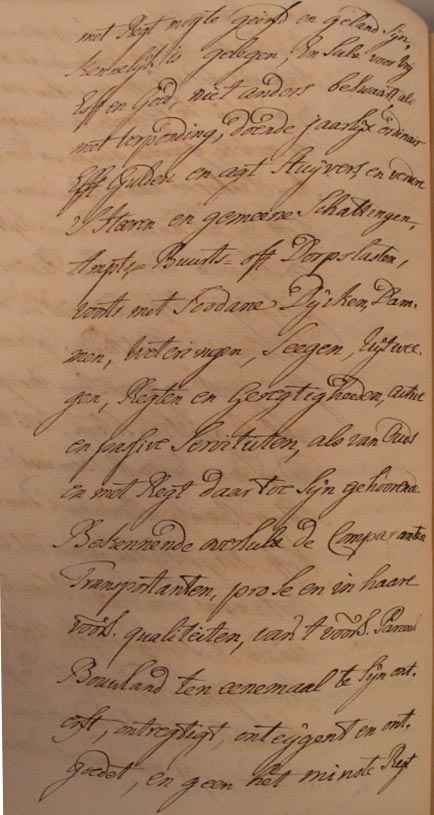 met Regt mogte geërfd en geland Sijn,
kennelijk is gelegen, En Sulx voor vrij
Eÿff en Goed, niet anders beswaart, als
met verponding, doende jaarlijx ordinair
Elff Gulden en agt Stuijvers en verdere
's Heeren en gemeene Schattingen,
Ampt,= Buurts= off Dorpslasten,
voorts met Sodane Dijcken, Dam-
men, weteringen, Seegen, uijtwee-
gen, Regten en Geregtigheeden, active
en passive Servituten, als van Ouds
en met Regt daar toe Sijn gehoorende
Bekennende oversulx de Comparanten
Transportanten, pro se en in haare
voors. qualiteiten, van 't voors. Parceel
Bouwland ten eenemaal te Sijn ont-
erft, ontregtigt, onteijgent en ont-
goedet, en geen het minste Regt